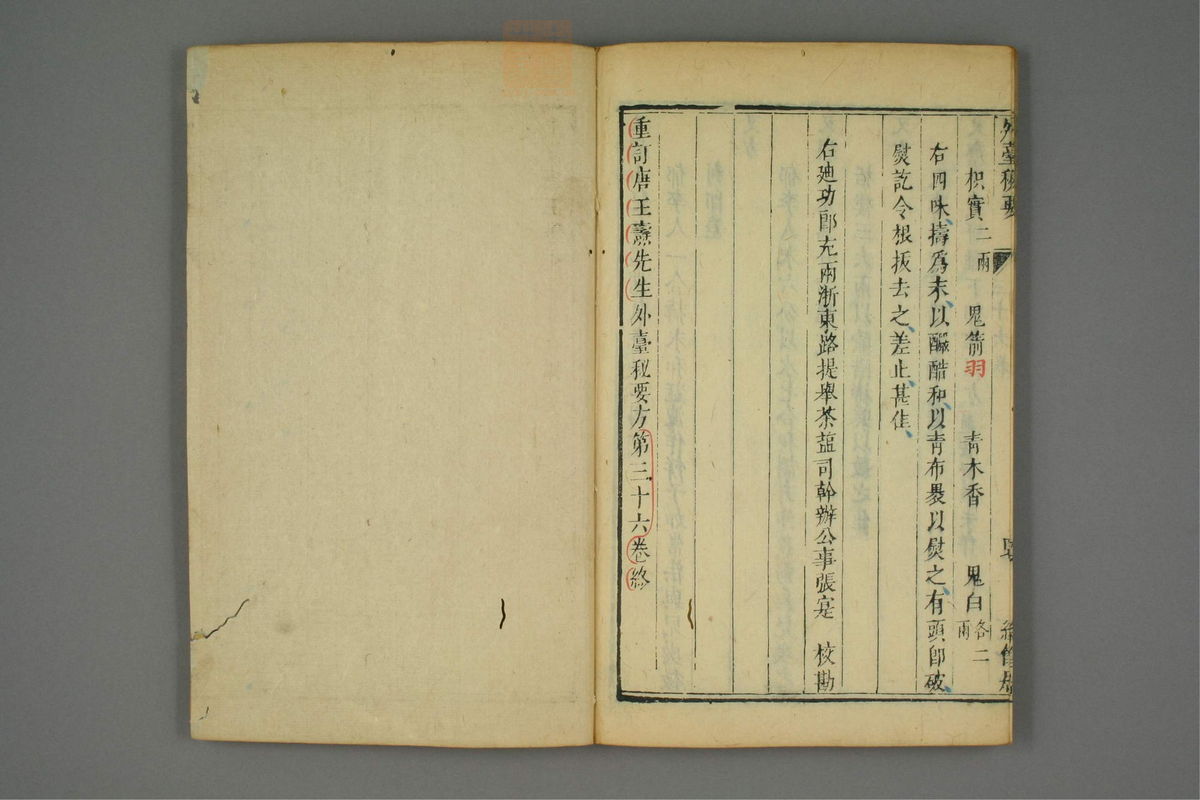 外臺秘要
枳實二兩 鬼箭羽 青木香 鬼臼各二兩
右四味擣爲末以釅醋和以青布裹以熨之有頭卽破
熨訖令根拔去之差止甚佳
右廸功郎充兩浙東路提舉茶塩司幹辦公事張寔 校勘
重訂唐王燾先生外臺秘要方第三十六卷終